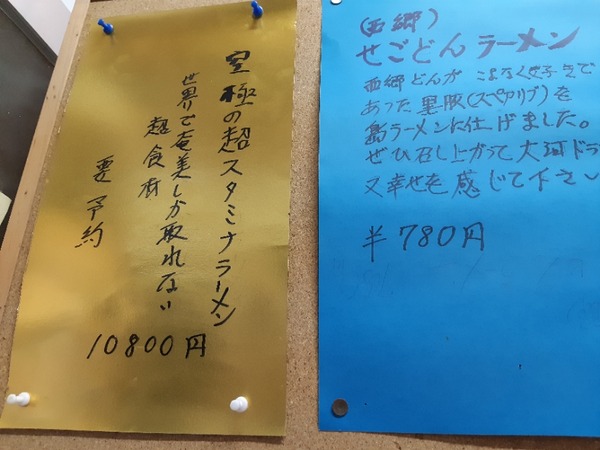 究極の超スタミナラーメン
世界で奄美しか取れない
超食材
要予約
10800円
(西郷)
せごどんラーメン
西郷どんが こよなく好きで
あった黒豚(スペアリブ)を
島ラーメンに仕上げました。
ぜひ召し上がって大河ドラ
又幸せを感じて下さい
¥780円